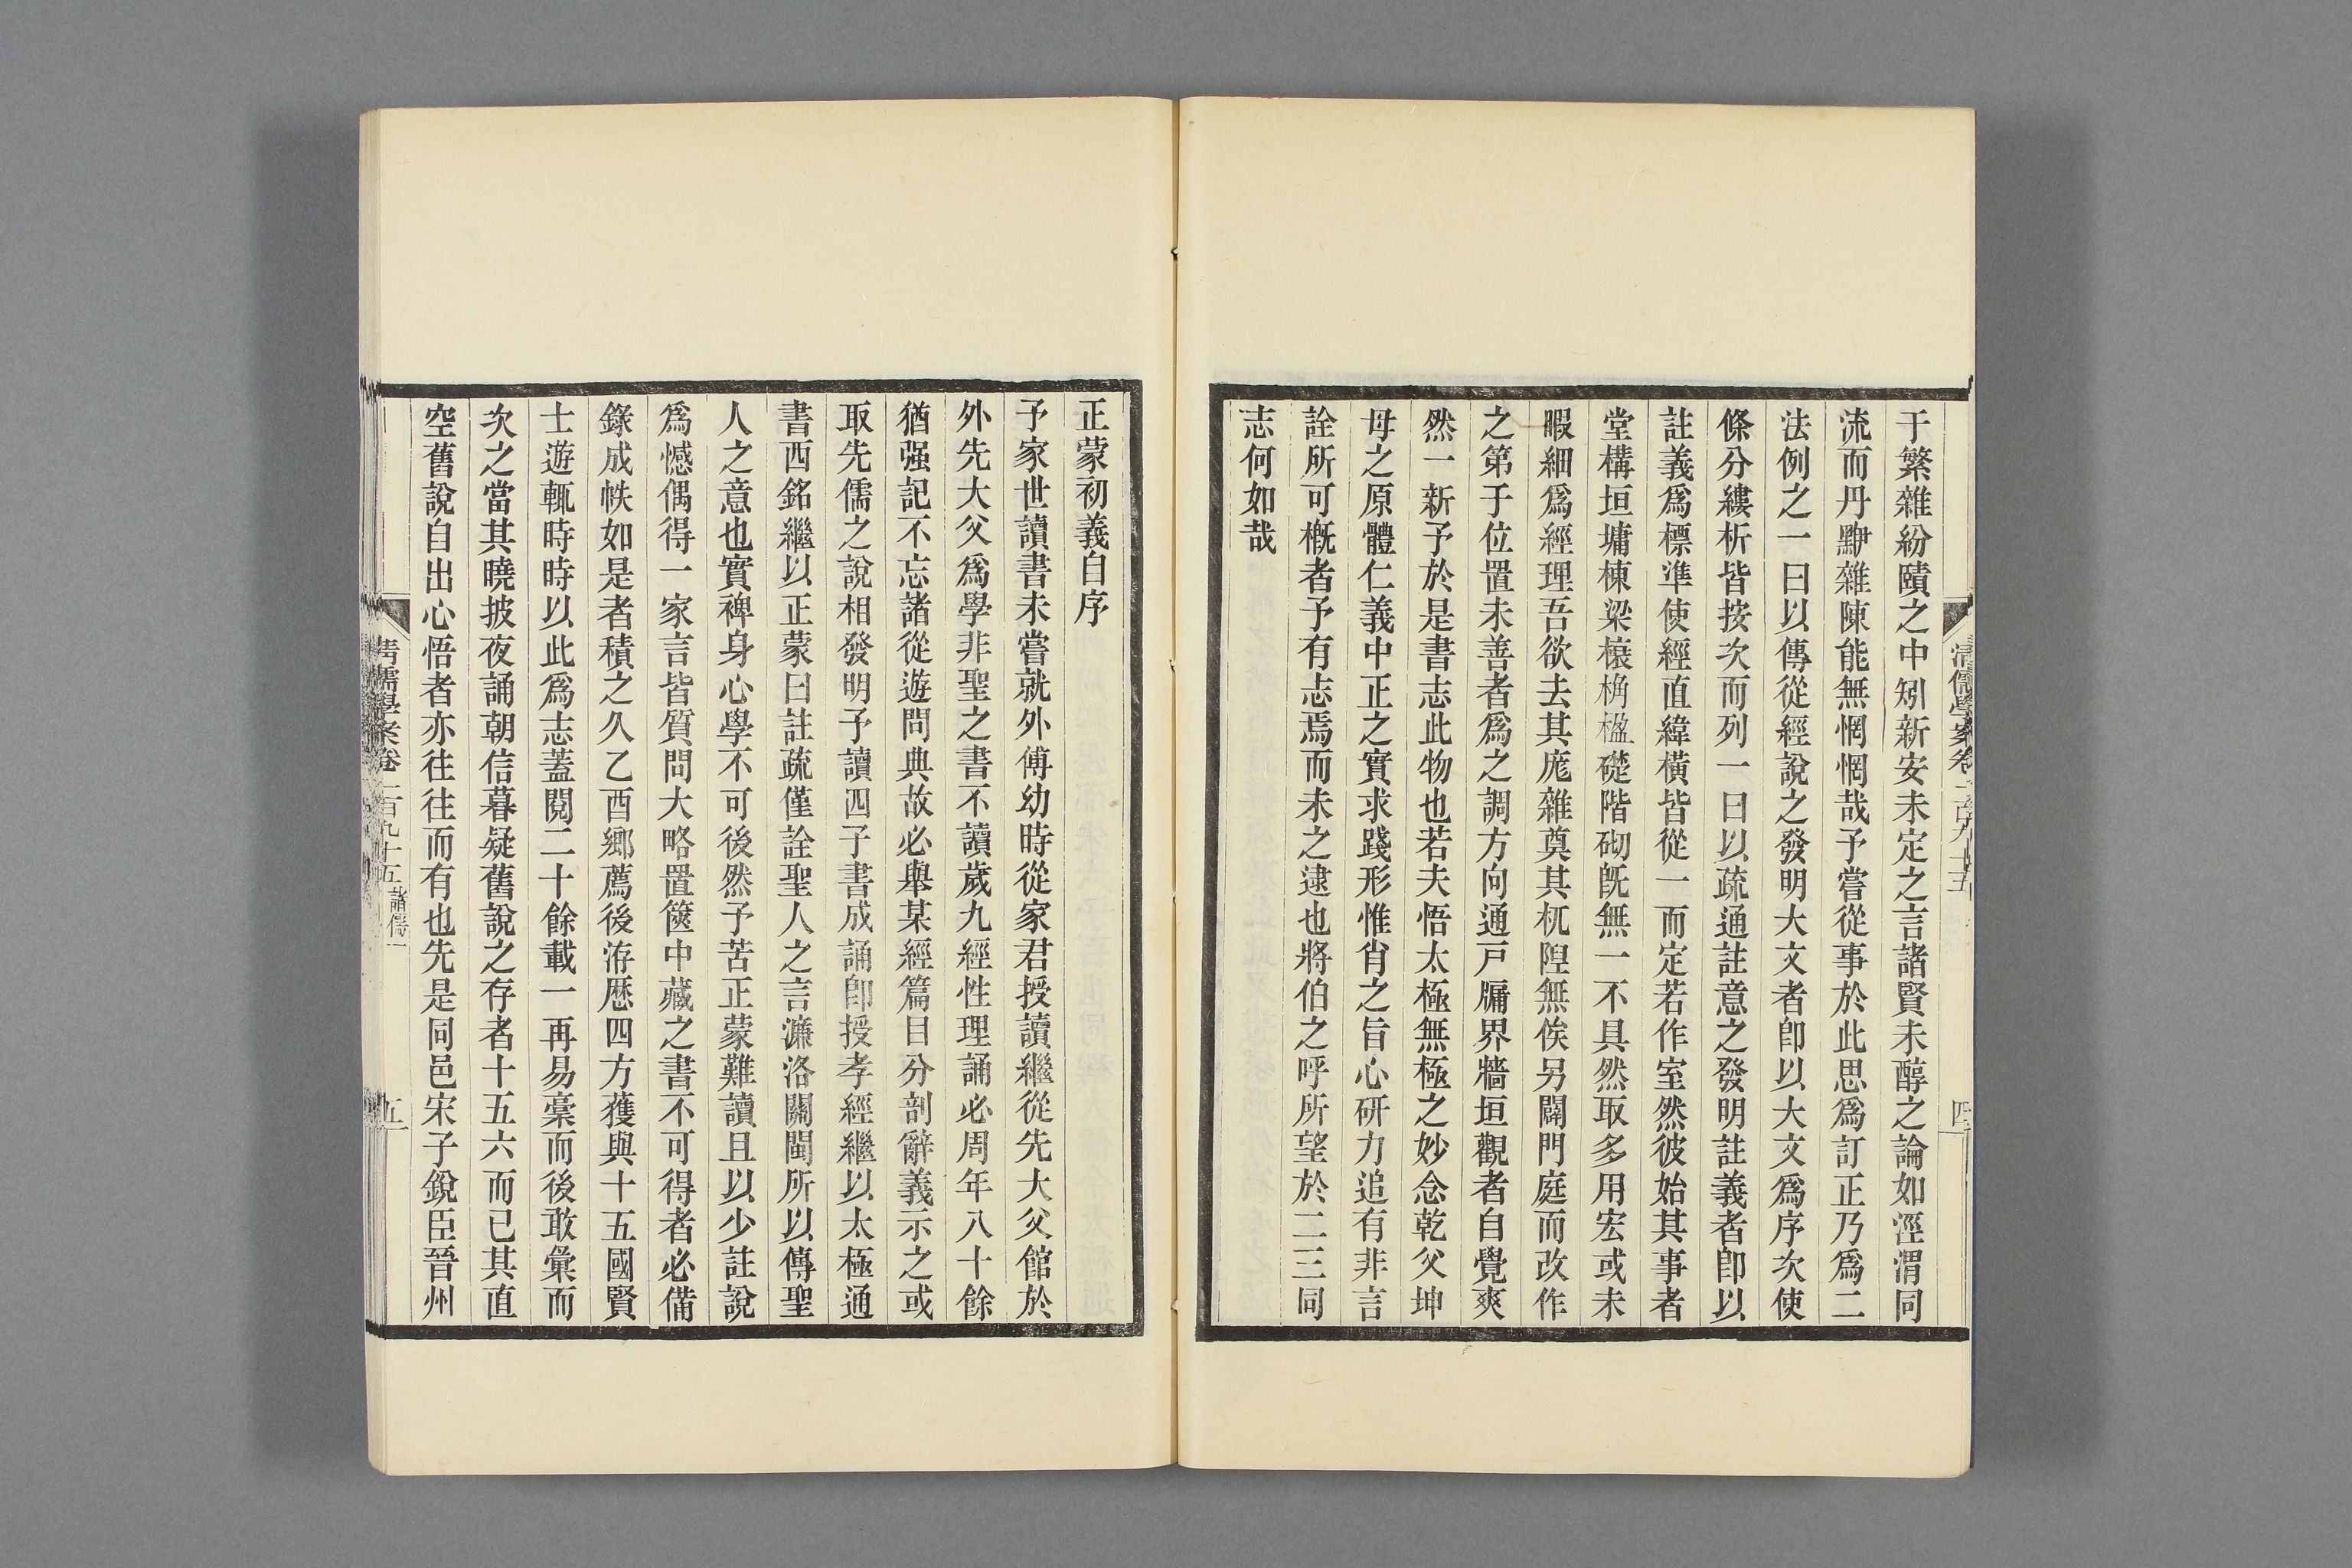 于繁雜紛賾之中矧新安未定之言諸賢未醇之論如涇渭同
流而丹黟雜陳能無惘惘哉予嘗從事於此思爲訂正乃爲二
法例之一曰以傳從經說之發明大文者卽以大文爲序次使
條分縷析皆按次而列一曰以疏通註意之發明註義者卽以
註義爲標準使經直緯橫皆從一而定若作室然彼始其事者
堂構垣墉棟梁榱桷楹礎階砌旣無一不具然取多用宏或未
暇細爲經理吾欲去其庬雜奠其杌隉無俟另闢門庭而改作
之第于位置未善者爲之調方向通戸牖界牆垣觀者自覺爽
然一新予於是書志此物也若夫悟太極無極之妙念乾父坤
母之原體仁義中正之實求踐形惟肖之旨心研力追有非言
詮所可槪者予有志焉而未之逮也將伯之呼所望於二三同
志何如哉
清儒學案卷一百九十五
四
正蒙初義自序
予家世讀書未嘗就外傅幼時從家君授讀繼從先大父館於
外先大父爲學非聖之書不讀歲九經性理誦必周年八十餘
猶强記不忘諸從遊問典故必舉某經篇目分剖辭義示之或
取先儒之說相發明予讀四子書成誦卽授孝經繼以太極通
書西銘繼以正蒙曰註疏僅詮聖人之言濂洛關閩所以傳聖
人之意也實裨身心學不可後然予苦正蒙難讀且以少註說
爲憾偶得一家言皆質問大略置篋中藏之書不可得者必備
錄成帙如是者積之久乙酉鄉薦後洊歷四方獲與十五國賢
士遊輒時時以此爲志蓋閱二十餘載一再易稾而後敢彙而
次之當其曉披夜誦朝信暮疑舊說之存者十五六而已其直
空舊說自出心悟者亦往往而有也先是同邑宋子銳臣晉州
清儒學案卷一百九十五 諸儒一
五